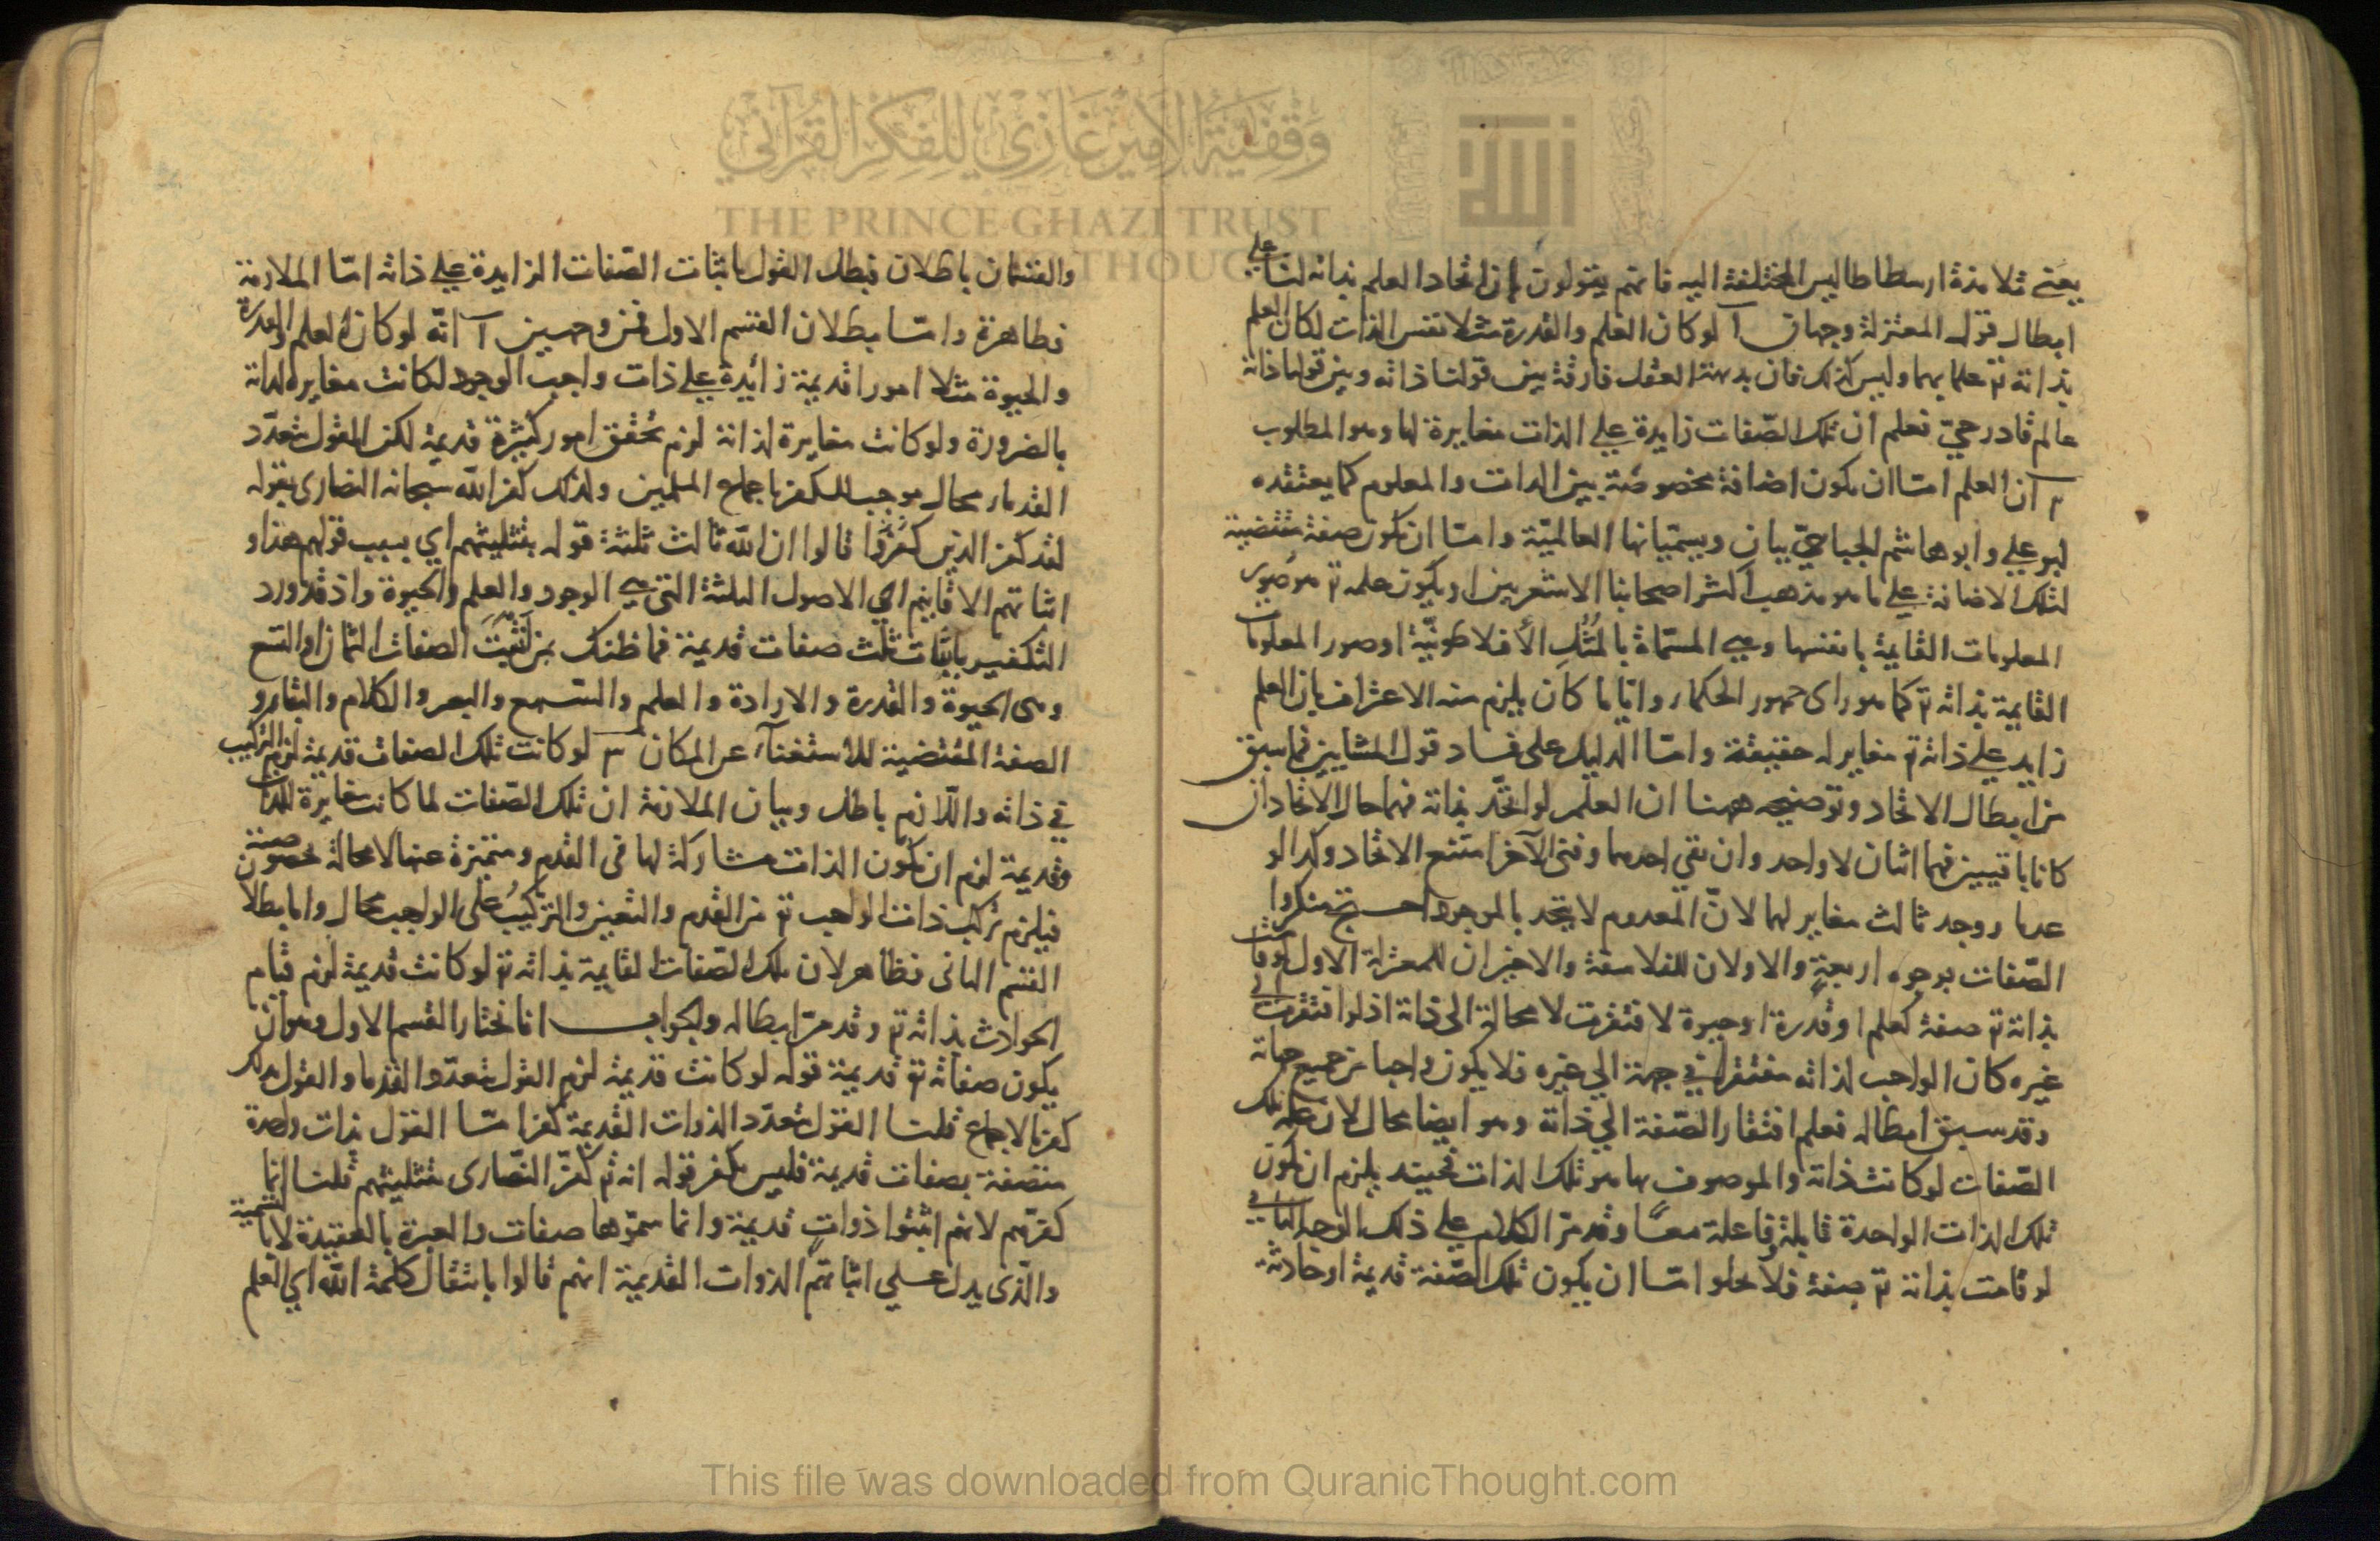 يعني تلامذة ارسطاطاليس المختلفة اليه فانهم يقولون بان اتحاد العلم بذاته لنا علي
ابطال قول المعتزلة وجهان آ لو كان العلم والقدرة مثلا نفس الذات لكان العلم
بذاته تع علما بهما وليس كذلك فان بديهة العقل فارقة بين قولنا ذاته وبين قولنا ذاته
عالم قادر حيّ فعلم ان تلك الصّفات زايدة علي الذات مغايرة لها وهو المطلوب
ب ان العلم امّا ان يكون اضافة مخصوصة بين الذات والمعلوم كما يعتقده
ابو علي وابو هاشم الجبا ئيّ بيان ويسميانها العالميّة وامّا ان تكون صفة مقتضية
لتلك الاضافة علي ما هو مذهب اكثر اصحابنا الاشعريين او يكون علمه تع هو صور
المعلومات القايمة بانفسها وهي المسمّاة بالمُثُل الأفلاطونيّة او صور المعلومات
القايمة بذاته تع كما هو راى جمهور الحكماء وايا ما كان يلزم منه الاعتراف بان العلم
زايد علي ذاته تع مغاير له حقيقة وامّا الدليل على فساد قول المشايين فما سبق
من ابطال الاتحاد وتوضيحه ههنا ان العلم لو اتحّد بذاته فهما حال الاتحاد ان
كانا باقيين فهما اثنان لا واحد وان بقي احدهما وفني الآخر امتنع الاتحاد وكذا لو
عدما ووجد ثالث مغاير لهما لانّ المعدوم لا يتحد بالموجود احتج منكروا
الصّفات بوجوه اربعةٍ والاولان للفلاسفة والاخيران للمعتزلة الاول لو قامت
بذاته تع صفة كعلم او قدرة او حيوة لافتقرت لا محالة الى ذاته اذ لو افتقرت الي
غيره كان الواجب لذاته مفتقرا في جهة الي غيره فلا يكون واجبا من جميع جهاته
وقد سبق ابطاله فعلم افتقار الصّفة الي ذاته وهو ايضا محال لان علة تلك
الصّفات لو كانت ذاته والموصوف بها هو تلك الذات فحينئذ يلزم ان تكون
تلك الذات الواحدة قابلة وفاعلة معًا وقد مرّ الكلام علي ذلك الوجه الثاني
لو قامت بذاته تع صفة فلا يخلوا امّا ان يكون تلك الصّفة قديمة او حادثة
والقسمان باطلان فبطل القول باثبات الصّفات الزايدة علي ذاته امّا الملازمة
فظاهرة وامّا بطلان القسم الاول فمن وجهين آ انّه لو كان العلم والقدرة
والحيوة مثلا امورا قديمة زائدة علي ذات واجب الوجود لكانت مغايرة لذاته
بالضرورة ولو كانت مغايرة لذاته لزم تحقق امور كثيرة قديمة لكن القول بتعدّد
القدماء محال موجب للكفر باجماع المسلمين ولذلك كفر اللّه سبحانه النصارى بقوله
لقد كفر الذين كفروا قالوا ان اللّه ثالث ثلثة قوله بتثليثهم اي بسبب قولهم هذا و
اثباتهم الاقانيم اي الاصول الثلثة التي هي الوجود والعلم والحيوة واذ قد ورد
التكفير باثبات ثلث صفات قديمة فما ظنك بمن اثبت الصفات الثمان او التسع
وهى الحيوة والقدرة والارادة والعلم والسّمع والبصر والكلام والبقاء و
الصفة المقتضية للاستغنآء عن المكان ب لو كانت تلك الصفات قديمة لزم التركيب
في ذاته واللّازم باطل وبيان الملازمة ان تلك الصّفات لما كانت مغايرة للذات
وقديمة لزم ان تكون الذات مشاركة لها فى القدم ومتميزة عنها لا محالة بخصوصية
فيلزم تركب ذات الواجب تع من القدم والتعين والتركيبُ على الواجب محال واما بطلان
القسم الثانى فظاهر لان تلك الصّفات القايمة بذاته تع لو كانت قديمة لزم قيام
الحوادث بذاته تع وقد مرّ ابطاله والجواب انا نختار القسم الاول وهو ان
يكون صفاته تع قديمة قوله لو كانت قديمة لزم القول بتعدّد القدما والقول بذلك
كفر بالاجماع قلنا القول بتعدّد الذوات القديمة كفر امّا القول بذات واحدة
متصفة بصفات قديمة فليس بكفر قوله انه تع كفّر النّصارى بتثليثهم قلنا انما
كفرّهم لانهم اثبتوا ذواتٍ قديمة وانما سمّوها صفات والعبرة بالعقيدة لا بالتسمية
والّذى يدل علي اثباتهم الذوات القديمة انهم قالوا بانتقال كلمة اللّه اي العلم
وقفية الأمير غازي للفكر القرآني
THE PRINCE GHAZI TRUST
THOUGHT
الله
This file was downloaded from QuranicThought.com